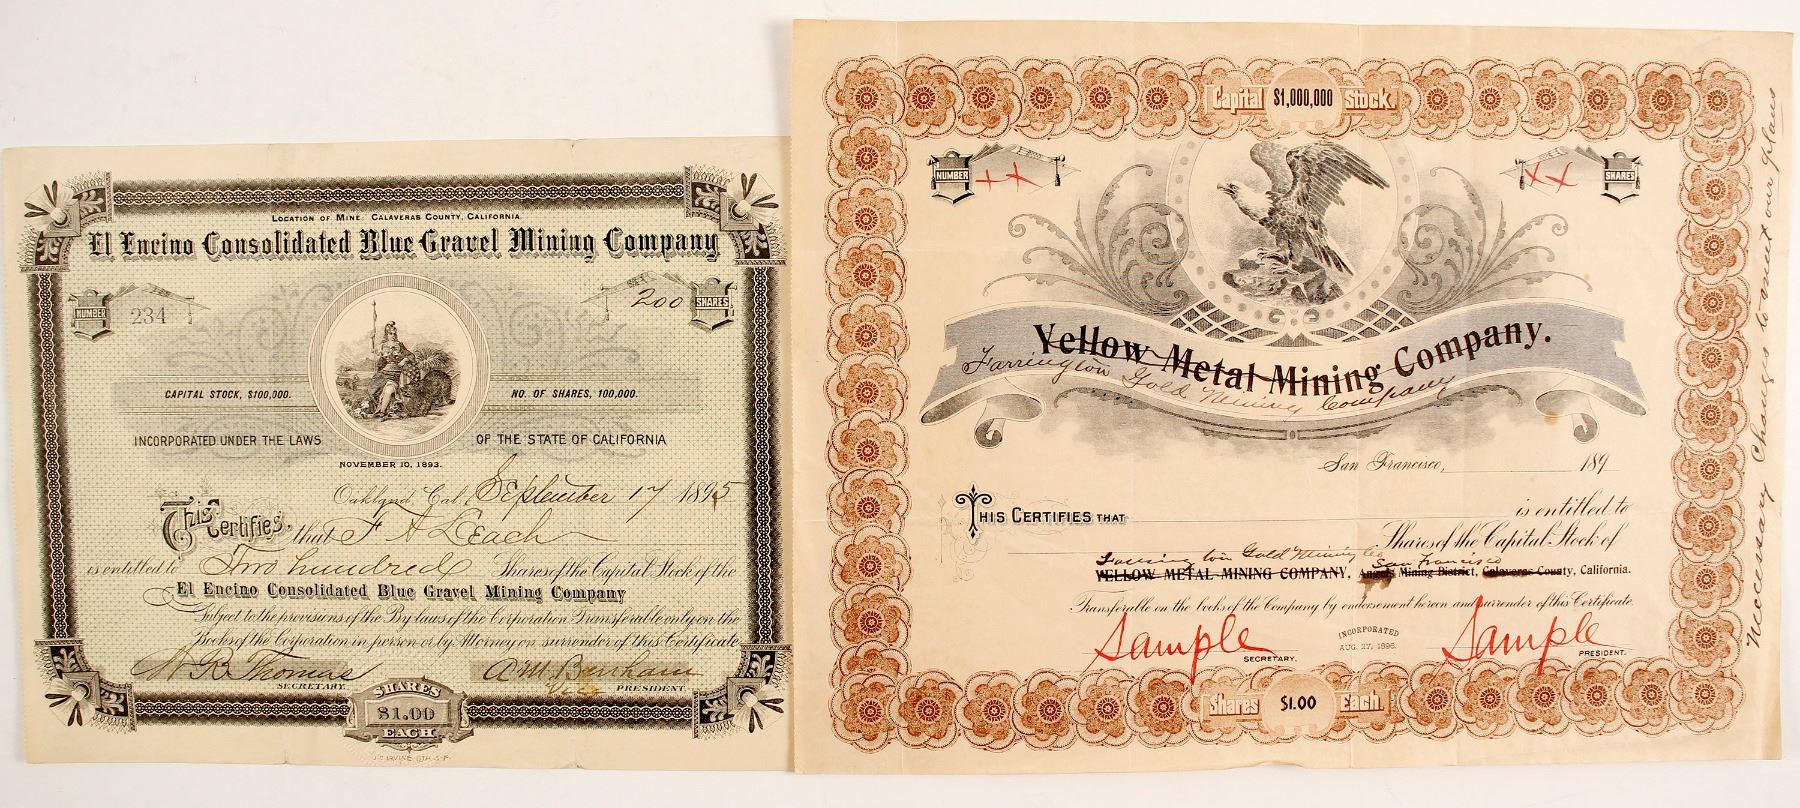 Location of Mine: Calaveras County, California
El Encino Consolidated Blue Gravel Mining Company
NUMBER 234
200 SHARES
CAPITAL STOCK, $100,000.
NO. OF SHARES, 100,000.
INCORPORATED UNDER THE LAWS OF THE STATE OF CALIFORNIA
NOVEMBER 10, 1893.
Oakland Cal. September 17 1895
This Certifies, that F A Leach
is entitled to Two hundred Shares of the Capital Stock of the
El Encino Consolidated Blue Gravel Mining Company
Subject to the provisions of the By-laws of the Corporation Transferable only on the
Books of the Corporation in person or by Attorney on surrender of this Certificate
W R Thomas
SECRETARY.
A M Benham
Vice PRESIDENT.
SHARES
$1.00
EACH
Capital $1,000,000 Stock.
NUMBER XX
XX SHARES
Yellow Metal Mining Company.
Farrington Gold Mining Company
San Francisco, 189
THIS CERTIFIES THAT
is entitled to
Shares of the Capital Stock of
Farrington Gold Mining Co San Francisco
YELLOW METAL MINING COMPANY, Angels Mining District, Calaveras County, California.
Transferable on the books of the Company by endorsement hereon and surrender of this Certificate.
Sample
SECRETARY.
INCORPORATED
AUG. 27, 1896.
Sample
PRESIDENT.
Shares $1.00 Each.
Necessary Changes to meet our plans